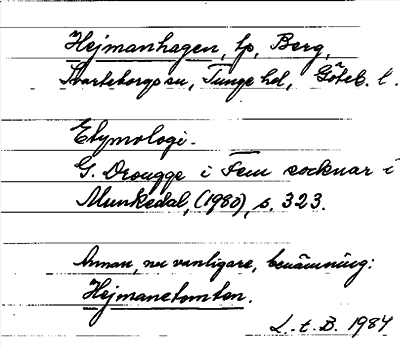 Hejmanhagen, lp, Berg,
Svarteborgs sn, Tunge hd, Göteb. l.
Etymologi.
G. Drougge i Fem socknar i
Munkedal, (1980), s. 323.
Annan, nu vanligare, benämning:
Hejmanetomten.
L. t. B. 1984